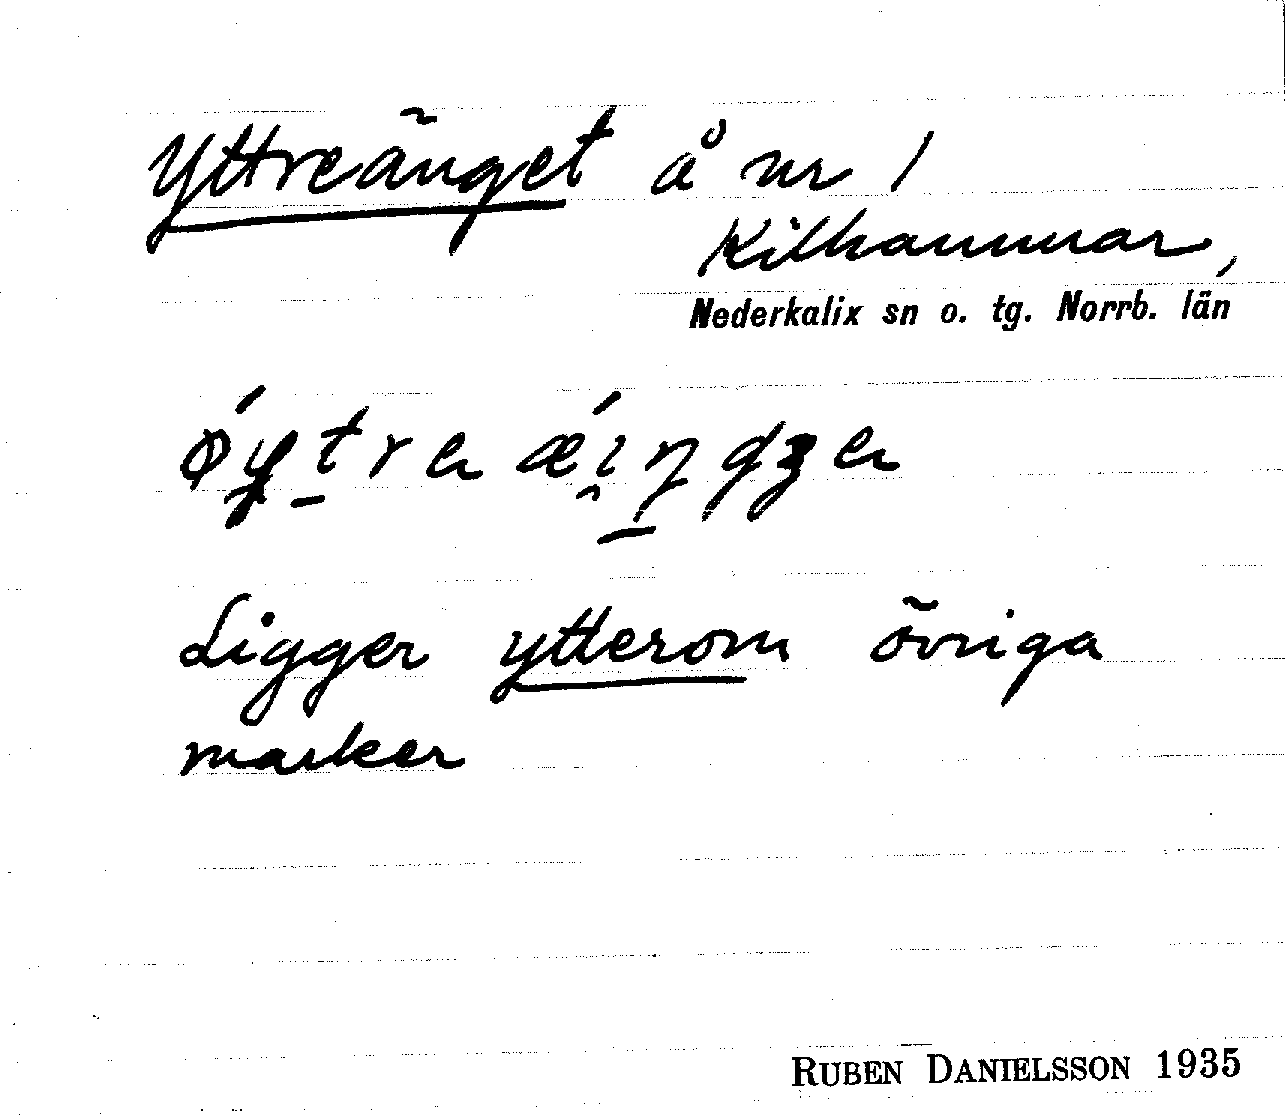 Yttreänget å nr 1
Kilhammar,
Nederkalix sn o. tg. Norrb. län
ǿy̯t̠re ǽi̯ŋ̠ɡʒe
Ligger ytterom övriga
marker
RUBEN DANIELSSON 1935